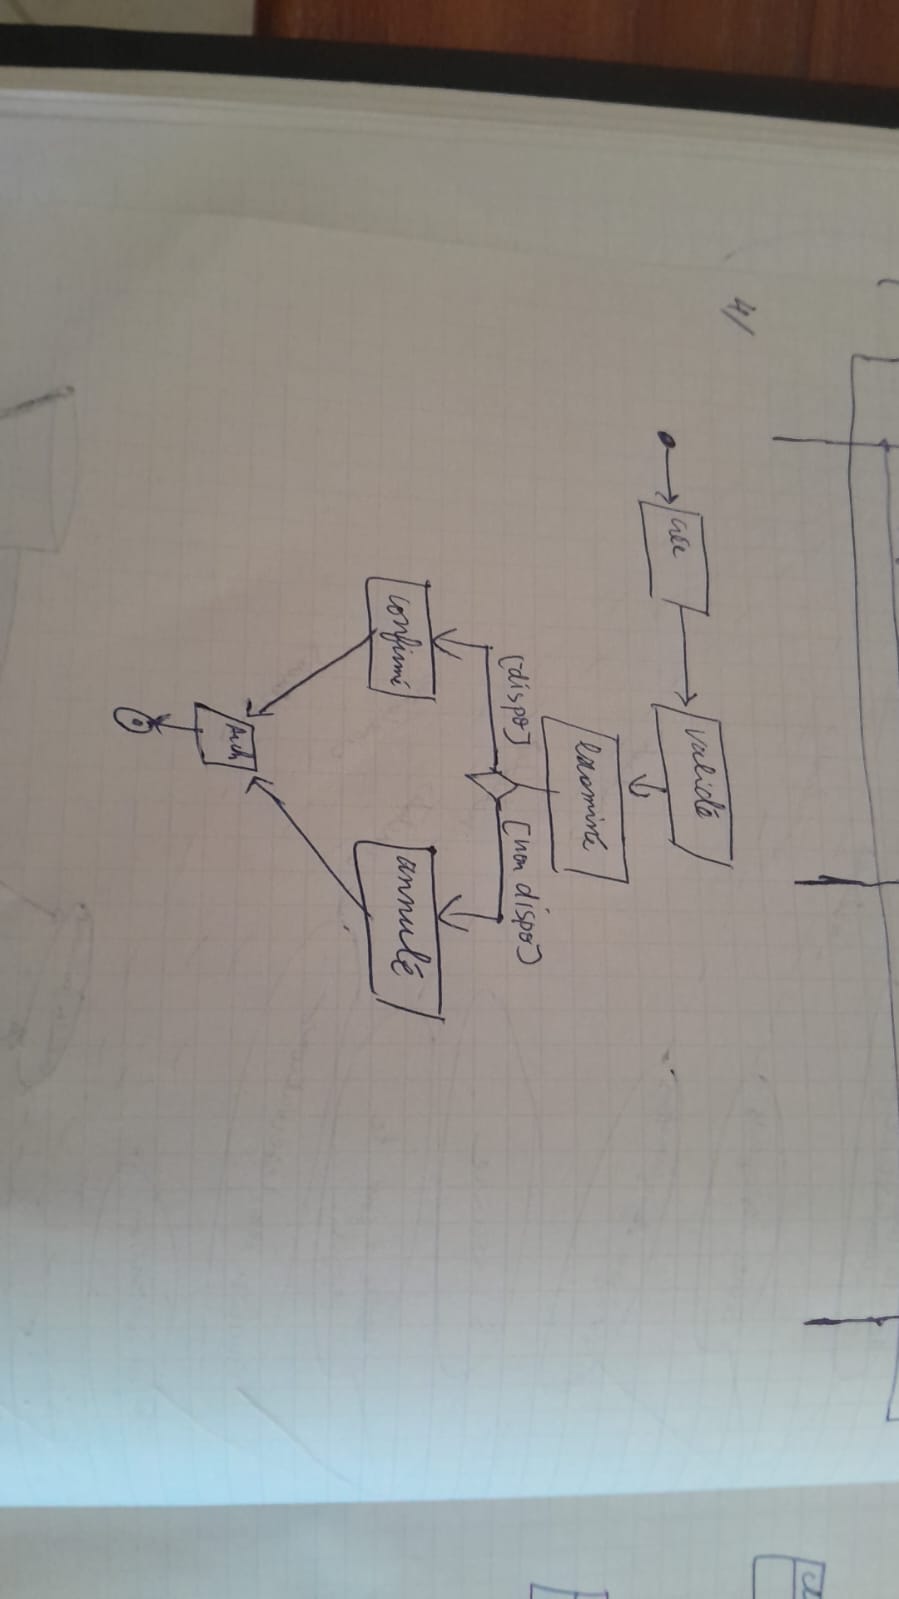 4/
créé
validé
examiné
[dispo]
[non dispo]
confirmé
annulé
Arch